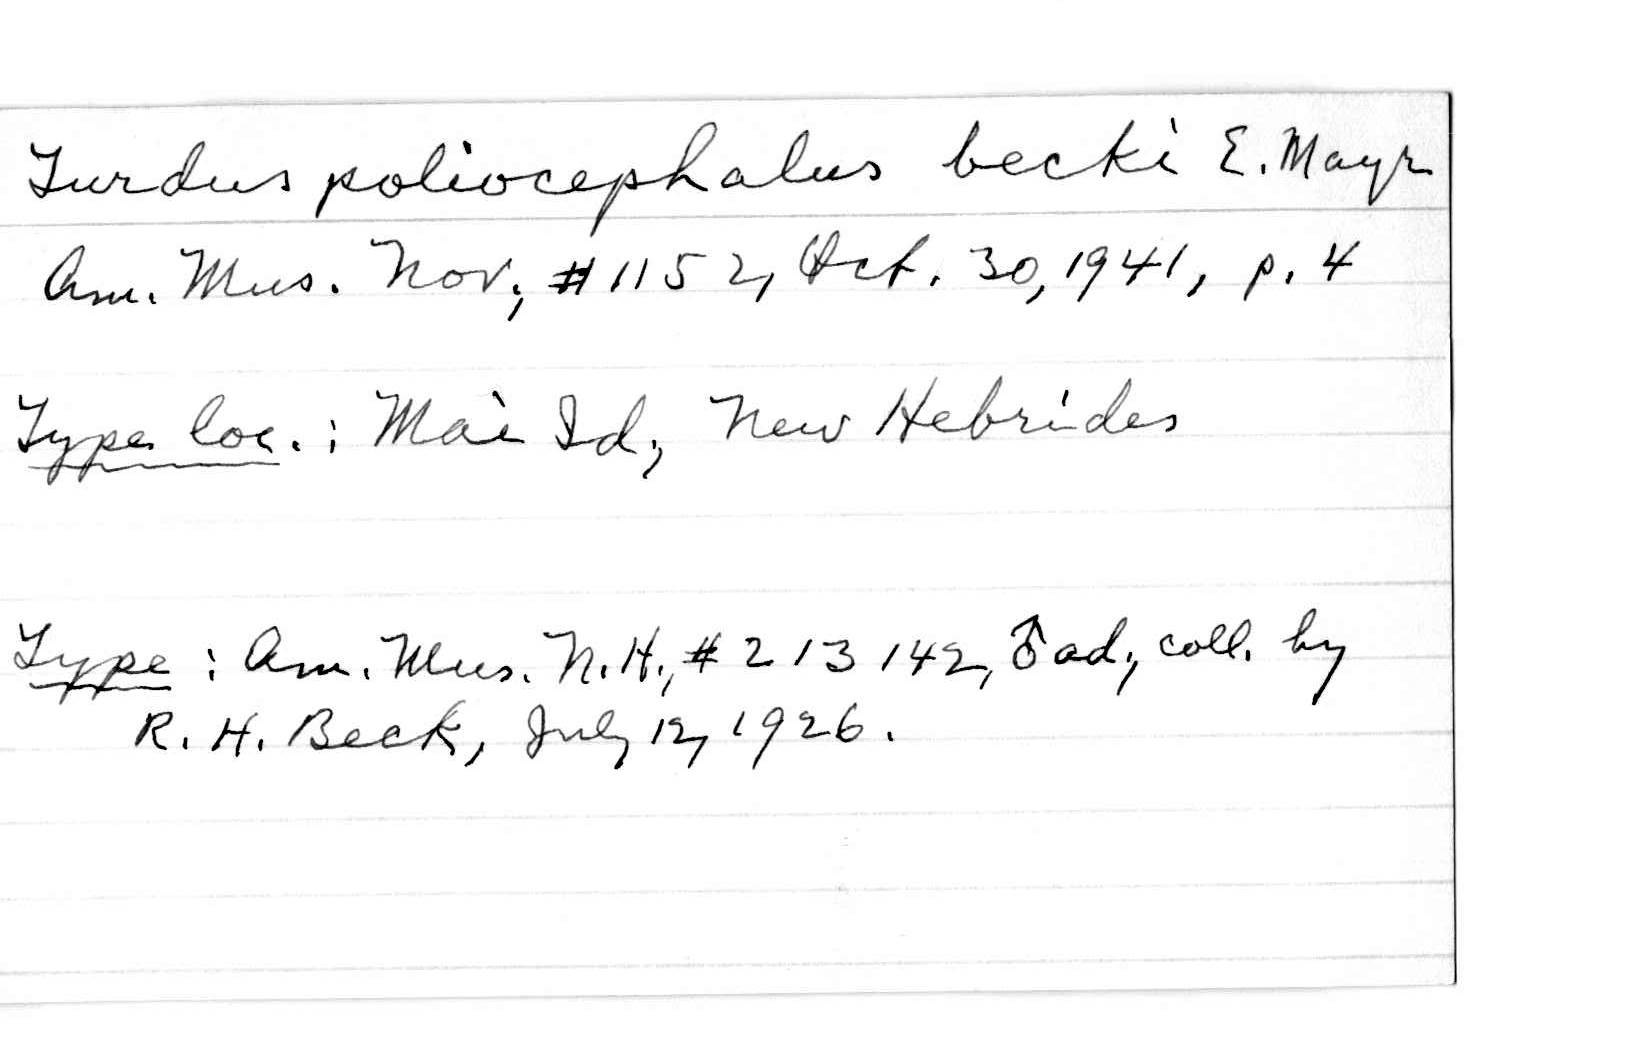 Turdus poliocephalus becki E. Mayr
Am. Mus. Nov., #1152, Oct. 30, 1941, p. 4
Type loc.: Mai Id., New Hebrides
Type: Am. Mus. N.H., #213142, ♂ ad., coll. by
R. H. Beck, July 12, 1926.